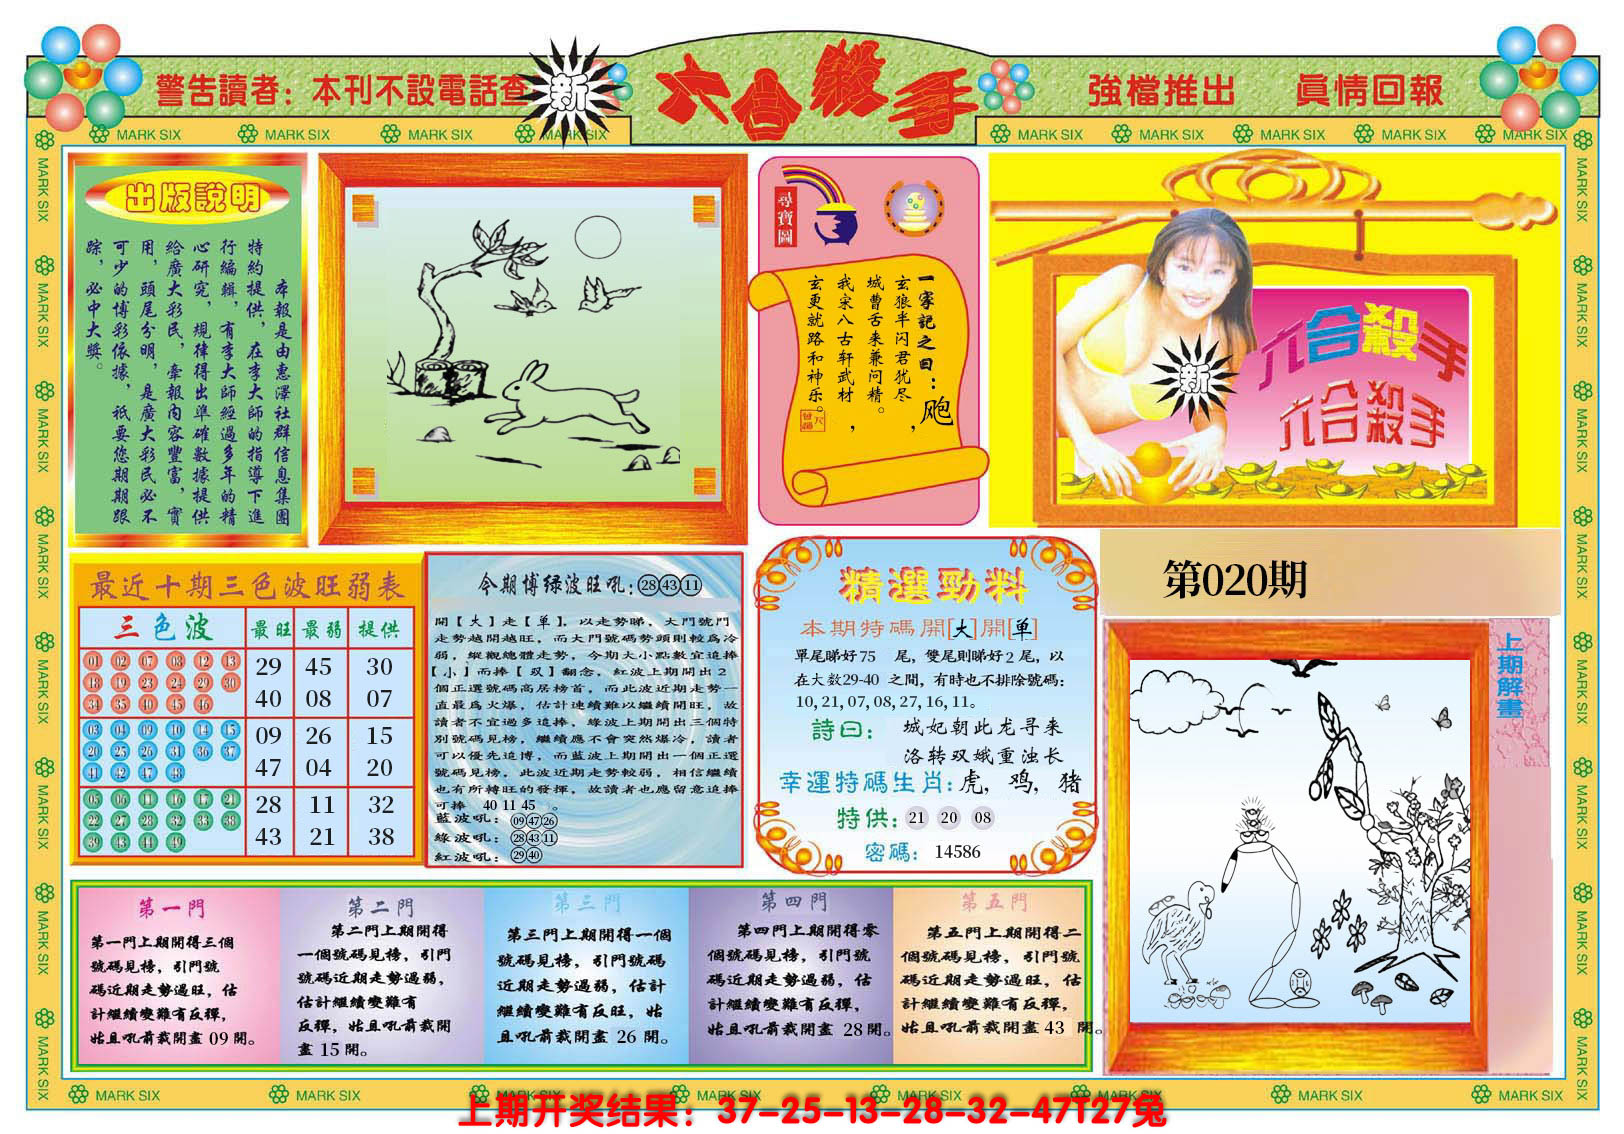 警告讀者：本刊不設電話查
新
六合殺手
強檔推出 眞情回報
MARK SIX
出版說明
本報是由惠澤社群信息集團
特約提供，在李大師的指導下進
行編輯，有李大師經過多年的精
心研究，規律得出準確數據提供
給廣大彩民，牽報內容豐富，實
用，頭尾分明，是廣大彩民必不
可少的博彩依據，祇要您期期跟
踪，必中大獎。
尋寶圖
一字記之曰：飑
玄狼半闪君犹尽，
城曹舌来兼问精。
我宗八古轩武材，
玄更就路和神乐。
新
六合殺手
六合殺手
第020期
上期解畫
最近十期三色波旺弱表
三色波 最旺 最弱 提供
01 02 07 08 12 13
18 19 23 24 29 30
34 35 40 45 46
29 45 30
40 08 07
03 04 09 10 14 15
20 25 26 31 36 37
41 42 47 48
09 26 15
47 04 20
05 06 11 16 17 21
22 27 28 32 33 38
39 43 44 49
28 11 32
43 21 38
今期博绿波旺吼：28 43 11
開【大】走【单】，以走勢睇，大門號門
走勢越開越旺，而大門號碼勢頭則較爲冷
弱，縱觀總體走勢，今期大小點數宜追捧
【小】而捧【双】翻念，紅波上期開出2
個正選號碼高居榜首，而此波近期走勢一
直最爲火爆，估計連續難以繼續開旺，故
讀者不宜過多追捧，綠波上期開出三個特
別號碼見榜，繼續應不會突然爆冷，讀者
可以優先追博，而藍波上期開出一個正選
號碼見榜，此波近期走勢較弱，相信繼續
也有所轉旺的發揮，故讀者也應留意追捧
可捧 40 11 45 。
藍波吼：09 47 26
綠波吼：28 43 11
紅波吼：29 40
精選勁料
本期特碼開[大]開[单]
單尾睇好75 尾，雙尾則睇好2尾，以
在大数29-40 之間，有時也不排除號碼：
10, 21, 07, 08, 27, 16, 11。
詩曰： 城妃朝此龙寻来
洛转双娥重浊长
幸運特碼生肖：虎，鸡，猪
特供：21 20 08
密碼：14586
第一門
第一門上期開得三個
號碼見榜，引門號
碼近期走勢過旺，估
計繼續變難有反彈，
姑且吼前裁開畫 09 開。
第二門
第二門上期開得
一個號碼見榜，引門
號碼近期走勢過弱，
估計繼續變難有
反彈，姑且吼前裁開
畫 15 開。
第三門
第三門上期開得一個
號碼見榜，引門號碼
近期走勢過弱，估計
繼續變難有反旺，姑
且吼前裁開畫 26 開。
第四門
第四門上期開得零
個號碼見榜，引門號
碼近期走勢過弱，估
計繼續變難有反彈，
姑且吼前裁開畫 28 開。
第五門
第五門上期開得二
個號碼見榜，引門號
碼近期走勢過旺，估
計繼續變難有反彈，
姑且吼前裁開畫 43 開。
上期开奖结果：37-25-13-28-32-47T27兔